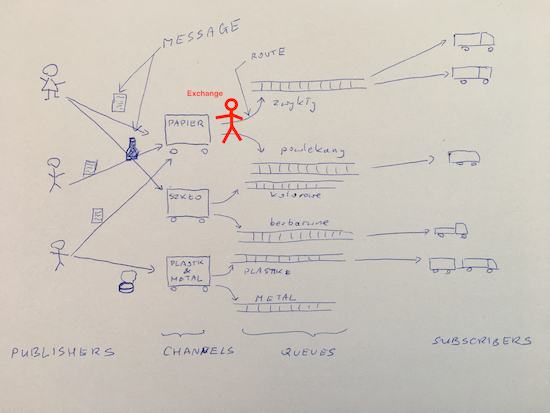 MESSAGE
ROUTE
Exchange
zwykły
PAPIER
powlekany
SZKŁO
kolorowe
bezbarwne
PLASTIK
&
METAL
PLASTIK
METAL
PUBLISHERS
CHANNELS
QUEUES
SUBSCRIBERS